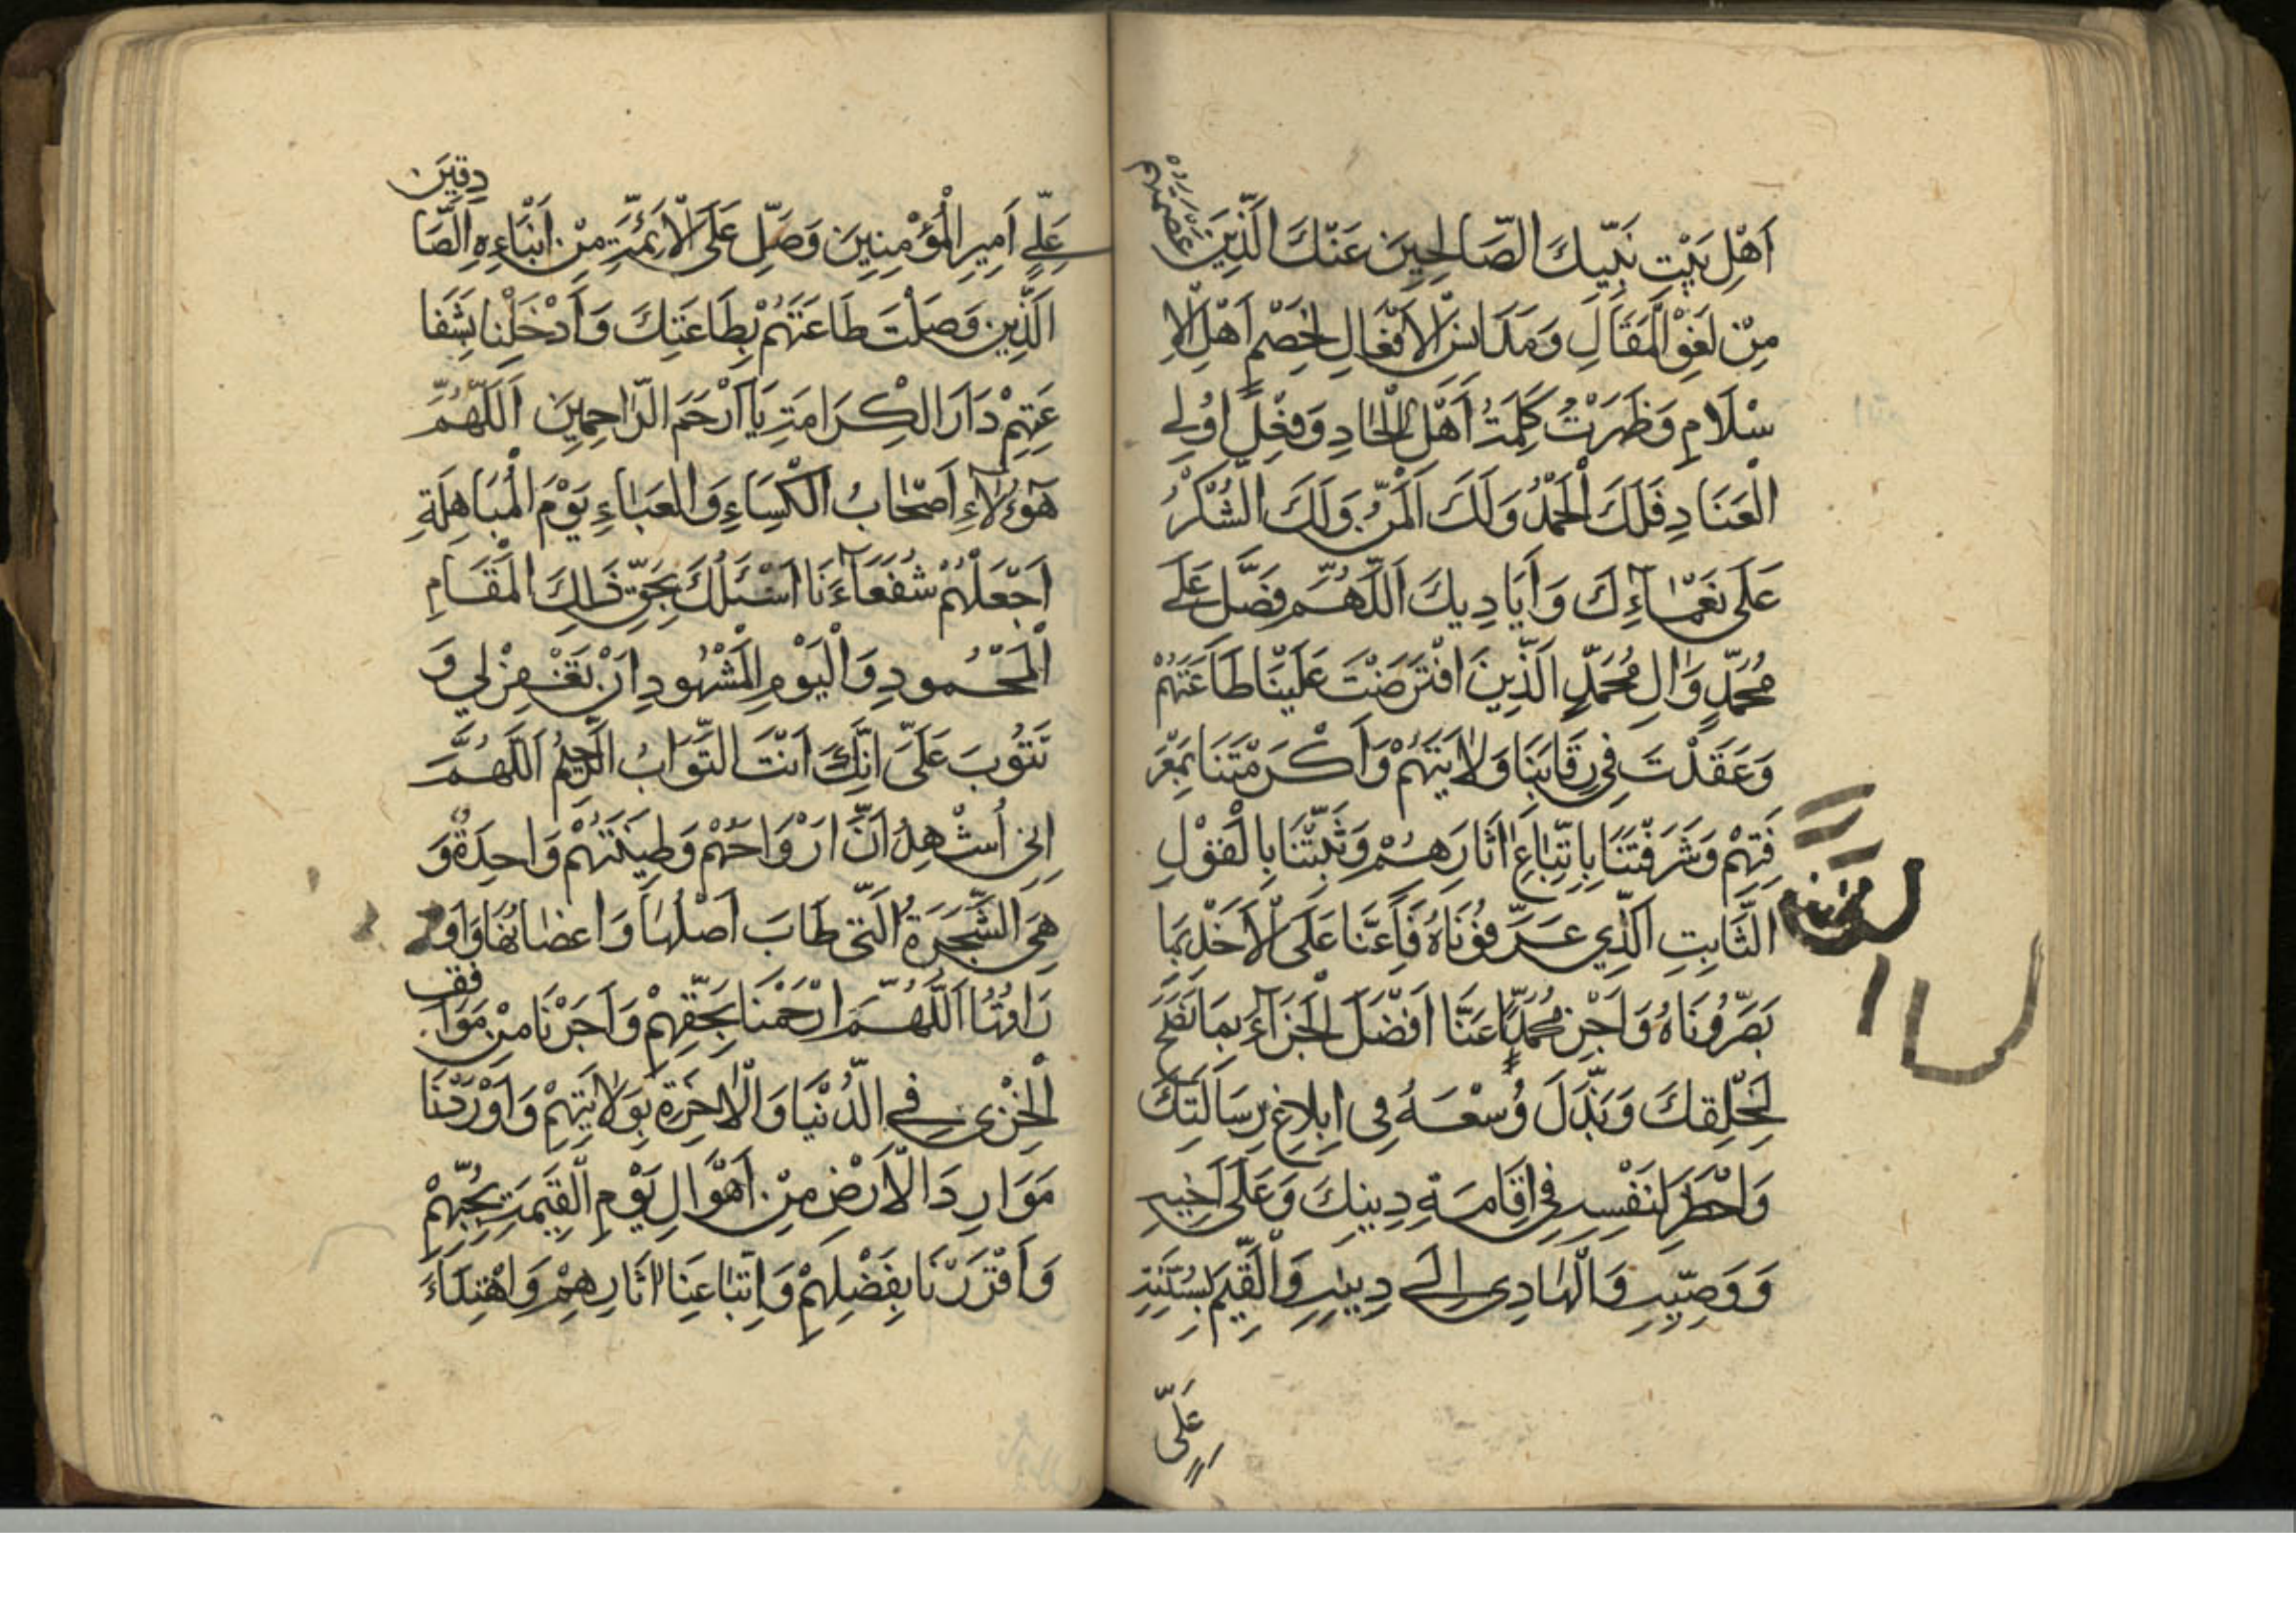 اَهْلِ بَيْتِ نَبِيِّكَ الصَّالِحِينَ عَنْكَ الَّذِينَ عَصَمْتَهُمْ
مِنْ لَغْوِ الْمَقَالِ وَمَدَانِسِ الْاَفْعَالِ لِخَصْمِ اَهْلِ الْاِ
سْلَامِ وَظَهَرَتْ كَلِمَةُ اَهْلِ الْحَادِ وَفِعْلِ اُولِي
الْعَنَادِ فَلَكَ الْحَمْدُ وَلَكَ الْمَنُّ وَلَكَ الشُّكْرُ
عَلَى نَعْمَآءِكَ وَاَيَادِيكَ اَللّٰهُمَّ فَصَلِّ عَلَى
مُحَمَّدٍ وَاٰلِ مُحَمَّدٍ الَّذِينَ افْتَرَضْتَ عَلَيْنَا طَاعَتَهُمْ
وَعَقَدْتَ فِي رِقَابِنَا وَلَايَتَهُمْ وَاَكْرَمْتَنَا بِمَعْرَ
فَتِهِمْ وَشَرَفْتَنَا بِاتِّبَاعِ اٰثَارِهِمْ وَثَبَّتْنَا بِالْقَوْلِ
الثَّابِتِ الَّذِي عَرَّفُونَاهُ فَاَعِنَّا عَلَى الْاَخْذِ بِمَا
بَصَّرُونَاهُ وَاَجْزِ مُحَمَّدًا عَنَّا اَفْضَلَ الْجَزَآءِ بِمَا نَصَحَ
لِخَلْقِكَ وَبَذَلَ وُسْعَهُ فِي اِبْلَاغِ رِسَالَتِكَ
وَاخْطَرَ لِنَفْسِهِ فِي اِقَامَةِ دِينِكَ وَعَلَى اَخِيهِ
وَوَصِيِّهِ وَالْهَادِي اِلَى دِينِهِ وَالْقَيِّمِ بِسُنَّتِهِ
عَلِيٍّ
عَلِيٍّ اَمِيرِ الْمُؤْمِنِينَ وَصَلِّ عَلَى الْاَئِمَّةِ مِنْ اَبْنَاءِهِ الصَّا دِقِينَ
الَّذِينَ وَصَلْتَ طَاعَتَهُمْ بِطَاعَتِكَ وَاَدْخِلْنَا بِشَفَا
عَتِهِمْ دَارَ الْكِرَامَةِ يَا اَرْحَمَ الرَّاحِمِينَ اَللّٰهُمَّ
هٰؤُلَآءِ اَصْحَابُ الْكِسَاءِ وَالْعَبَاءِ يَوْمَ الْمُبَاهِلَةِ
اجْعَلْهُمْ شُفَعَآءَنَا اَسْئَلُكَ بِحَقِّ ذٰلِكَ الْمَقَامِ
الْمَحْمُودِ وَالْيَوْمِ الْمَشْهُودِ اَنْ تَغْفِرْ لِي وَ
تَتُوبَ عَلَيَّ اِنَّكَ اَنْتَ التَّوَّابُ الرَّحِيمُ اَللّٰهُمَّ
اِنِّي اُشْهِدُ اَنَّ اَرْوَاحَهُمْ وَطِينَتَهُمْ وَاحِدَةٌ وَ
هِيَ الشَّجَرَةُ الَّتِي طَابَ اَصْلُهَا وَاَعْضَانُهَا وَاَو
رَاقُهَا اَللّٰهُمَّ ارْحَمْنَا بِحَقِّهِمْ وَاَجِرْنَا مِنْ مَوَا قِفِ
الْخِزْيِ فِي الدُّنْيَا وَالْاٰخِرَةِ بِوَلَايَتِهِمْ وَاَوْرِدْنَا
مَوَارِدَ الْاَرْضِ مِنْ اَهْوَالِ يَوْمِ الْقِيٰمَةِ بِحُبِّهِمْ
وَاَقْرَرْنَا بِفَضْلِهِمْ وَاِتِّبَاعِنَا اٰثَارِهِمْ وَاهْتِدَاءَ